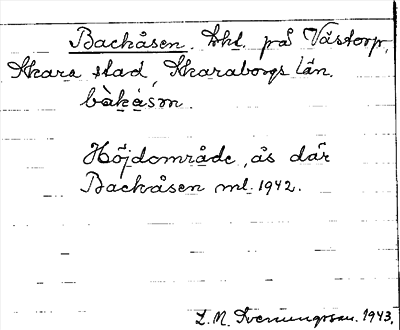 Backåsen. Lokt. på Västorp,
Skara stad, Skaraborgs län.
bàkåsən.
Höjdområde, ås där
Backåsen ml. 1942.
L. M. Svenungsson. 1943.